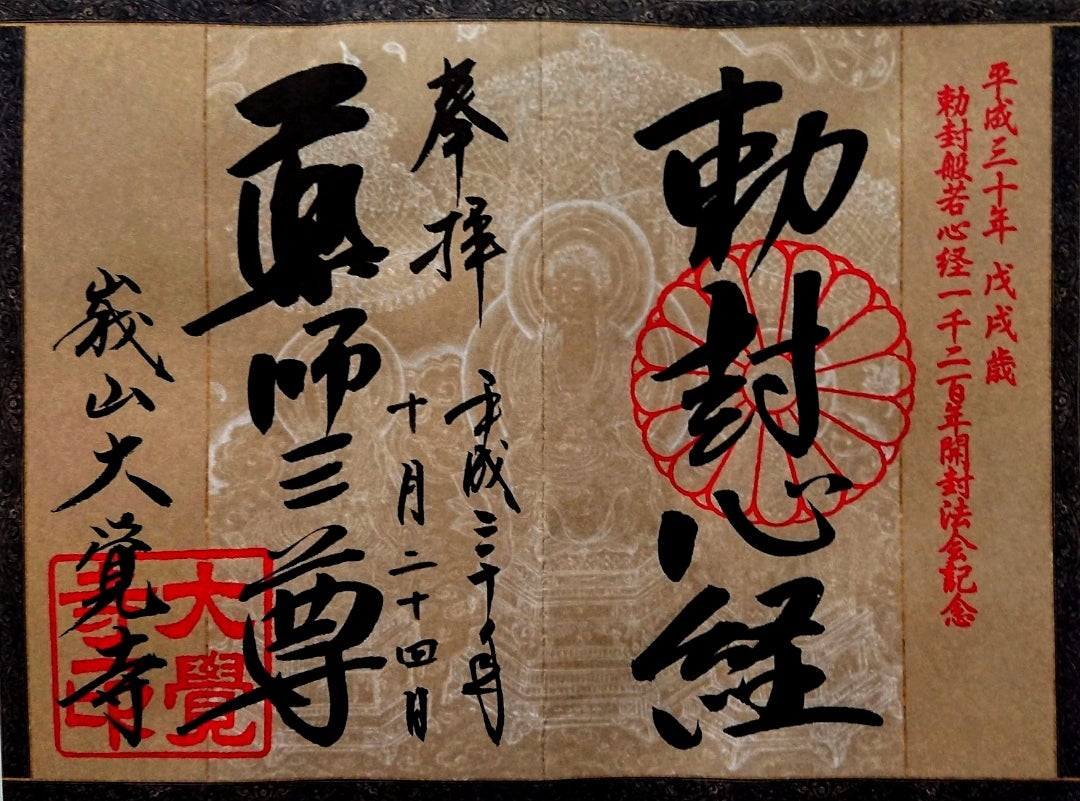 平成三十年 戊戌歳
勅封般若心経一千二百年開封法会記念
勅封心経
奉拝
平成三十年
十月二十四日
薬師三尊
嵯山大覚寺
大覺
寺印